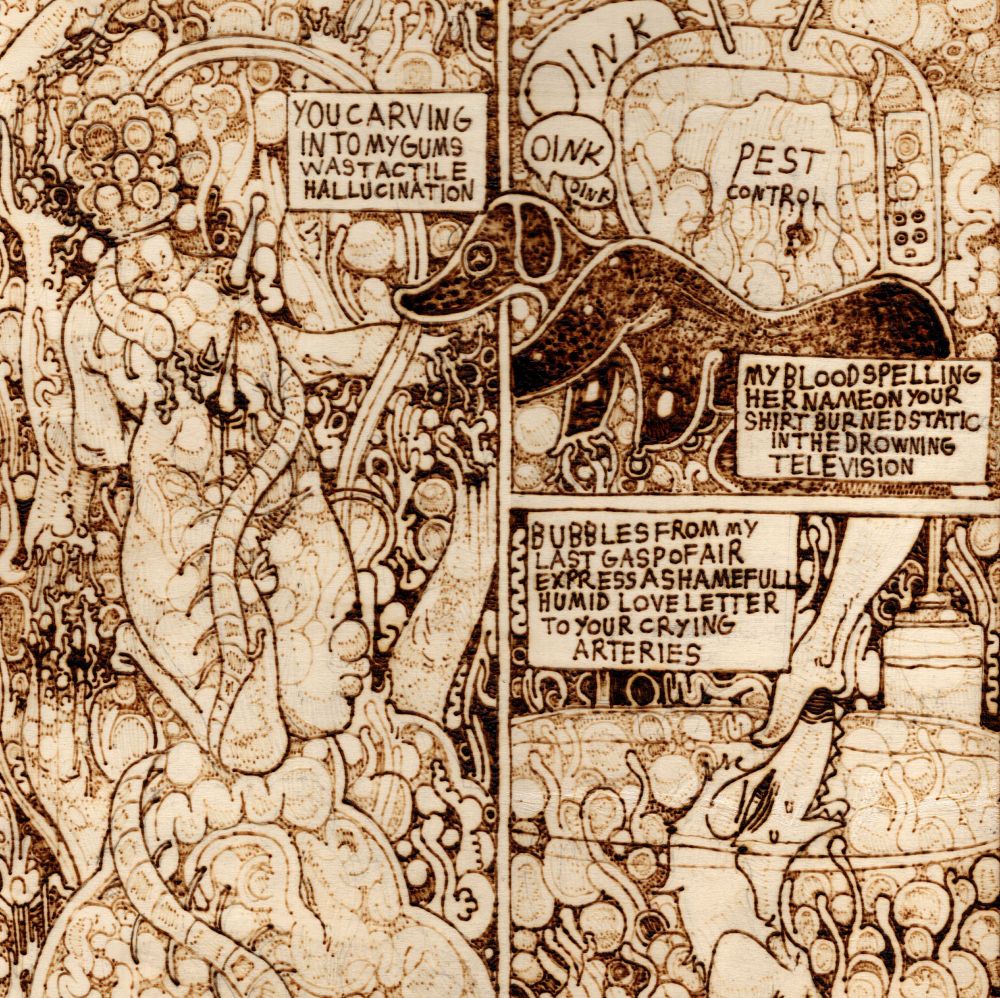 YOU CARVING
INTO MY GUMS
WAS TACTILE
HALLUCINATION
OINK
OINK
OINK
PEST
CONTROL
MY BLOOD SPELLING
HER NAME ON YOUR
SHIRT BURNED STATIC
IN THE DROWNING
TELEVISION
BUBBLES FROM MY
LAST GASP OF AIR
EXPRESS A SHAMEFULL
HUMID LOVE LETTER
TO YOUR CRYING
ARTERIES